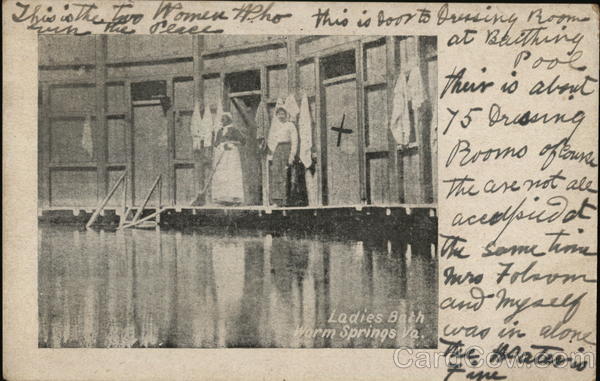 This is the two Women Who
run the Place
this is Door to Dressing Room
at Baithing
Pool
their is about
75 Dressing
Rooms of course
the are not all
accupied at
the same time
Mrs Folsom
and Myself
was in alone
The Water is
Fine
Ladies Bath
Warm Springs Va.
CardCow.com